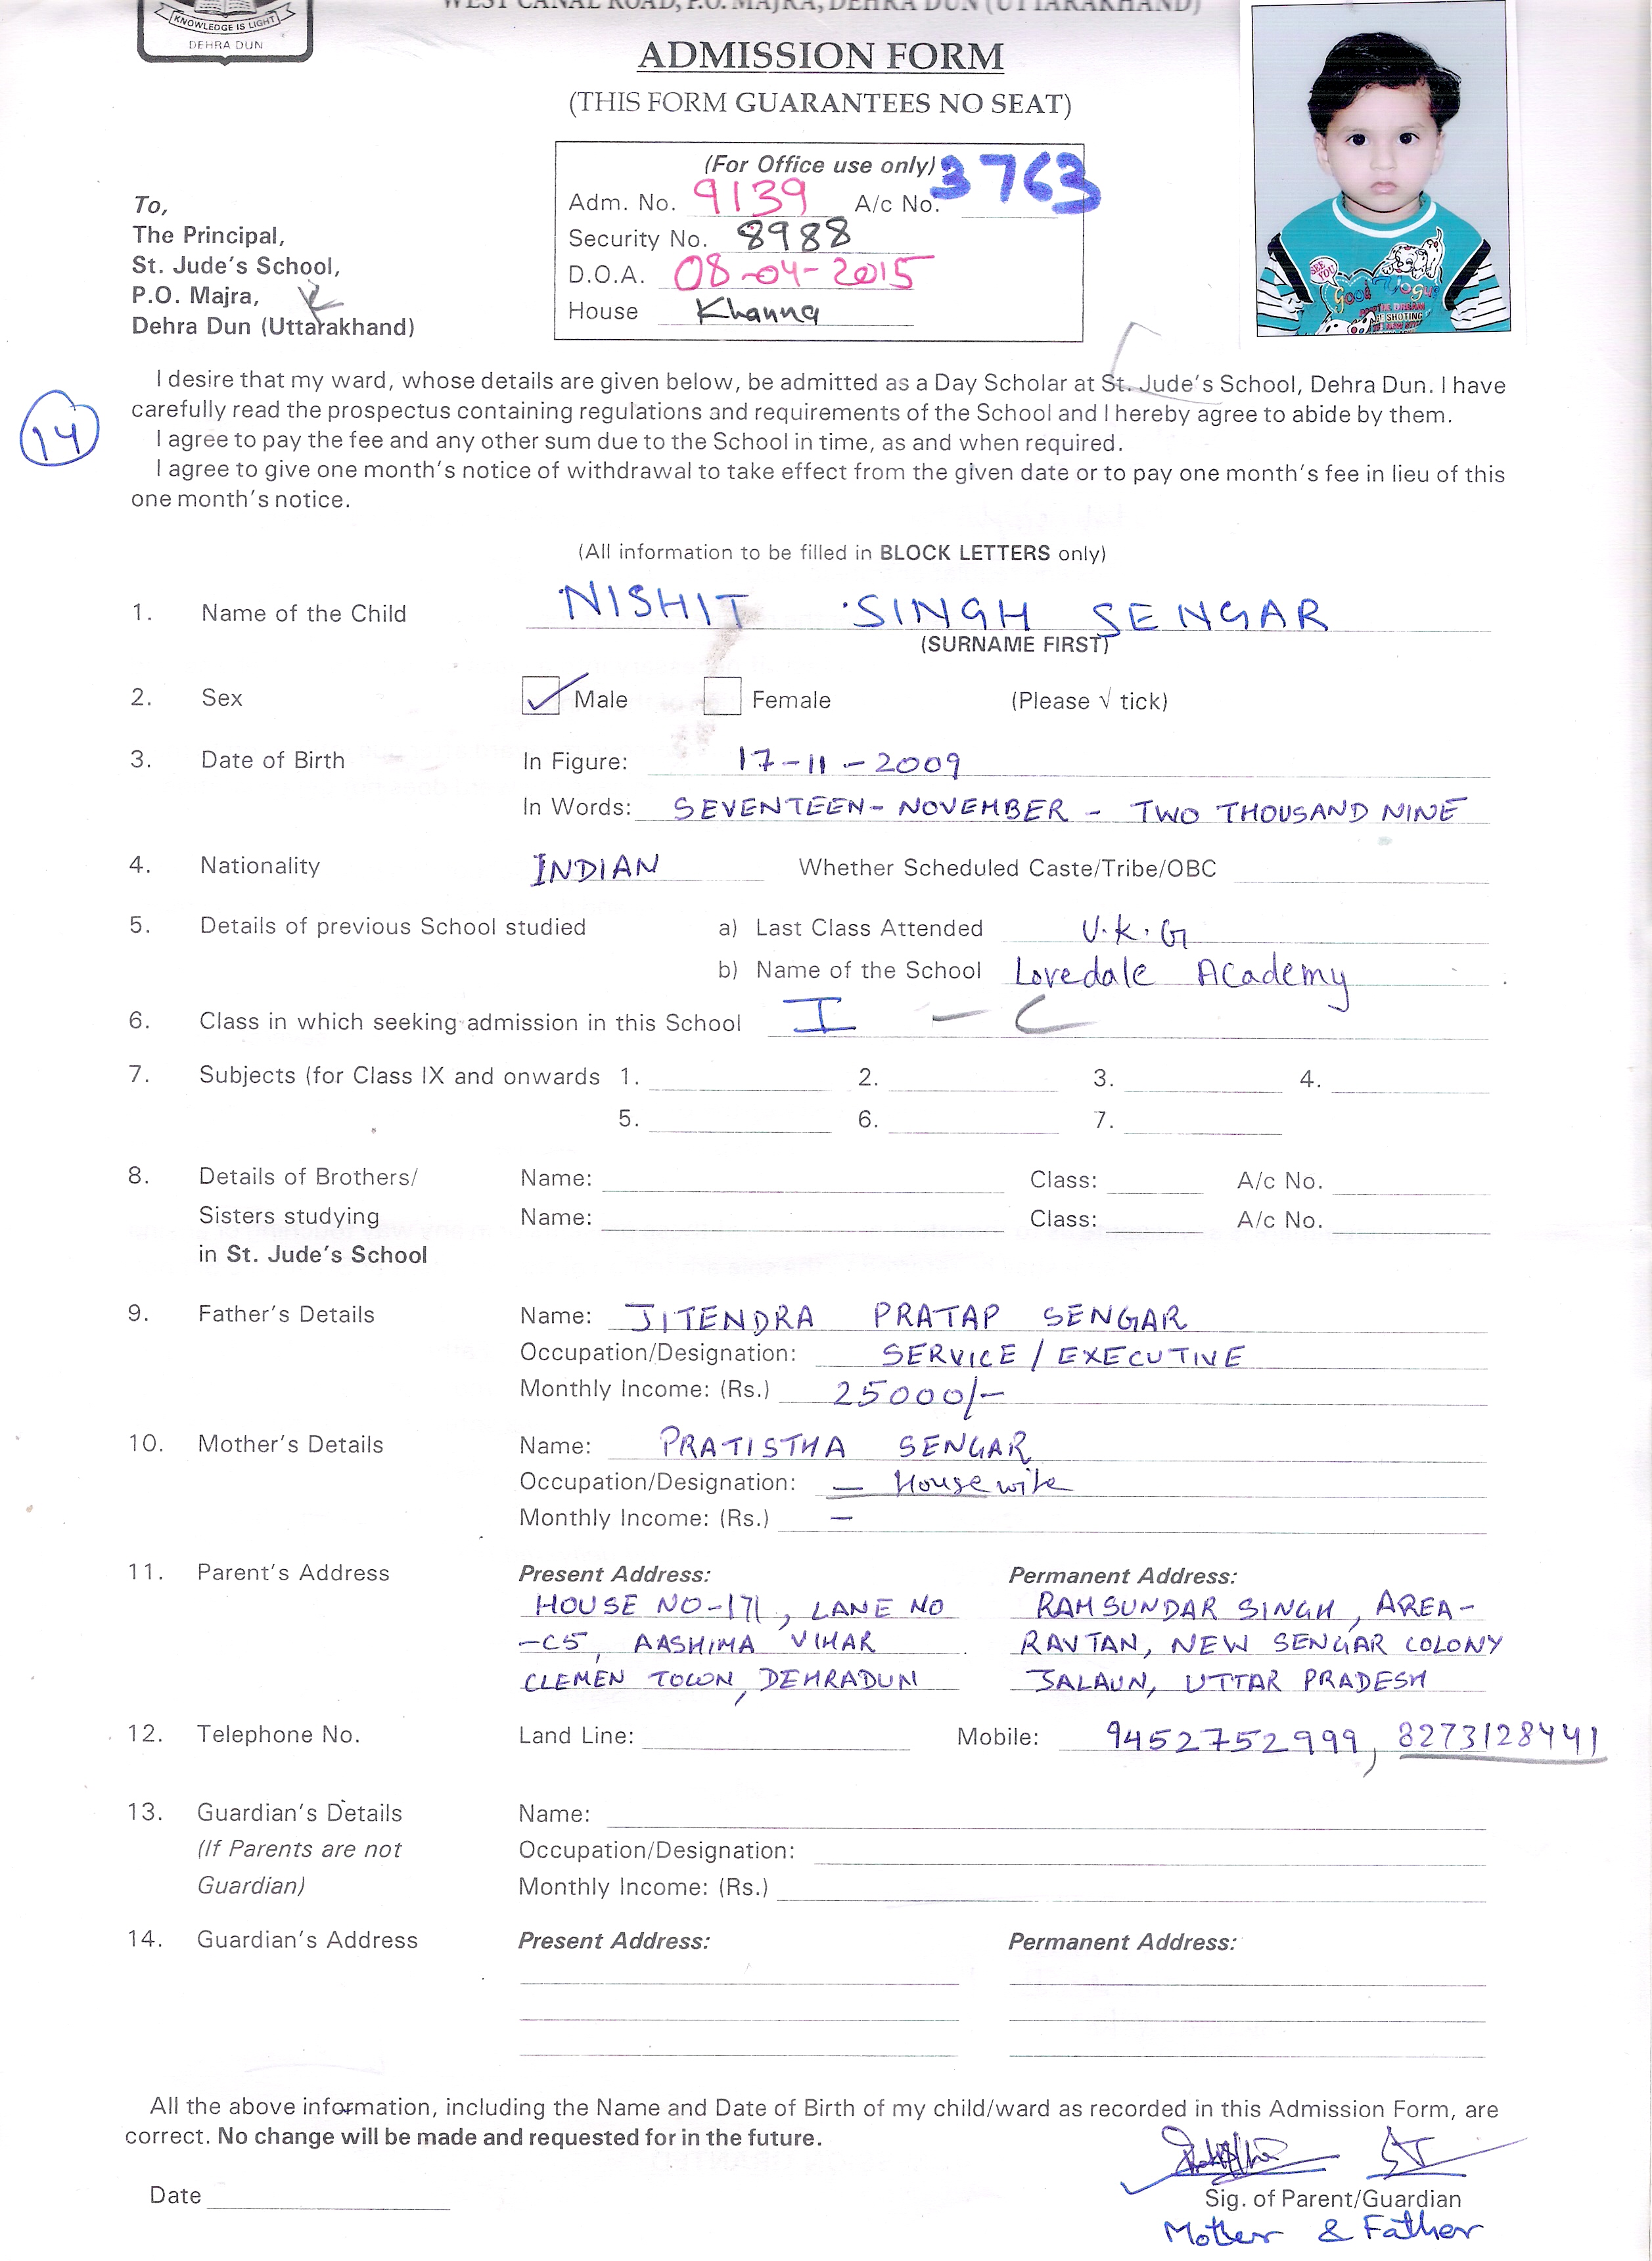 WEST CANAL ROAD, P.O. MAJRA, DEHRA DUN (UTTARAKHAND)
KNOWLEDGE IS LIGHT
DEHRA DUN
ADMISSION FORM
(THIS FORM GUARANTEES NO SEAT)
(For Office use only)
Adm. No. 9139 A/c No. 3763
Security No. 8988
D.O.A. 08-04-2015
House Khanna
To,
The Principal,
St. Jude's School,
P.O. Majra,
Dehra Dun (Uttarakhand)
SEE YOU
Good
I desire that my ward, whose details are given below, be admitted as a Day Scholar at St. Jude's School, Dehra Dun. I have
carefully read the prospectus containing regulations and requirements of the School and I hereby agree to abide by them.
14
I agree to pay the fee and any other sum due to the School in time, as and when required.
I agree to give one month's notice of withdrawal to take effect from the given date or to pay one month's fee in lieu of this
one month's notice.
(All information to be filled in BLOCK LETTERS only)
1. Name of the Child NISHIT SINGH SENGAR
(SURNAME FIRST)
2. Sex ✓ Male Female (Please √ tick)
3. Date of Birth In Figure: 17-11-2009
In Words: SEVENTEEN- NOVEMBER - TWO THOUSAND NINE
4. Nationality INDIAN Whether Scheduled Caste/Tribe/OBC
5. Details of previous School studied a) Last Class Attended U.K.G
b) Name of the School Lovedale Academy
6. Class in which seeking admission in this School I - C
7. Subjects (for Class IX and onwards 1. 2. 3. 4.
5. 6. 7.
8. Details of Brothers/ Name: Class: A/c No.
Sisters studying Name: Class: A/c No.
in St. Jude's School
9. Father's Details Name: JITENDRA PRATAP SENGAR
Occupation/Designation: SERVICE / EXECUTIVE
Monthly Income: (Rs.) 25000/-
10. Mother's Details Name: PRATISTHA SENGAR
Occupation/Designation: — Housewife
Monthly Income: (Rs.) —
11. Parent's Address Present Address: Permanent Address:
HOUSE NO-171, LANE NO RAM SUNDAR SINGH, AREA-
-C5, AASHIMA VIHAR RAVTAN, NEW SENGAR COLONY
CLEMEN TOWN, DEHRADUN JALAUN, UTTAR PRADESH
12. Telephone No. Land Line: Mobile: 9452752999, 8273128441
13. Guardian's Details Name:
(If Parents are not Occupation/Designation:
Guardian) Monthly Income: (Rs.)
14. Guardian's Address Present Address: Permanent Address:
All the above information, including the Name and Date of Birth of my child/ward as recorded in this Admission Form, are
correct. No change will be made and requested for in the future.
Date Sig. of Parent/Guardian
Mother & Father